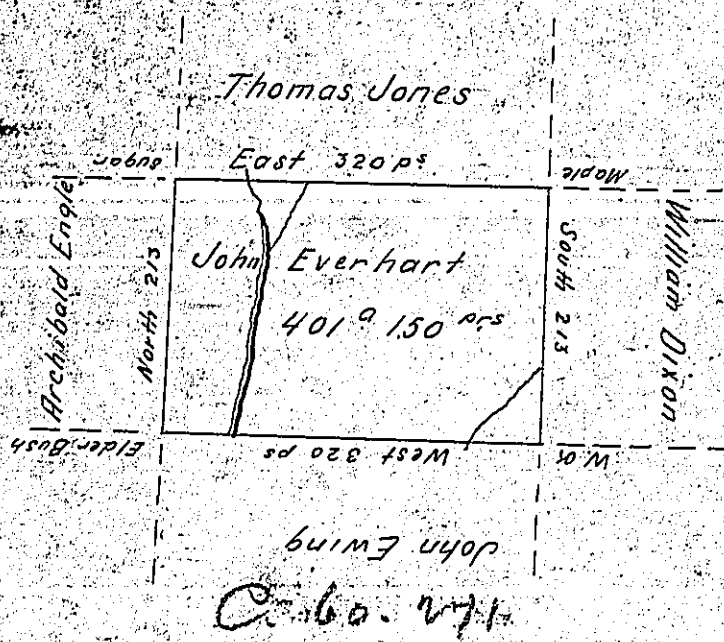 Thomas Jones
Sugar
East 320 ps
Maple
Archibald Engle
North 213
John Everhart
401 a 150 prs
South 213
William Dixon
Elder Bush
West 320 ps
W. O.
John Ewing